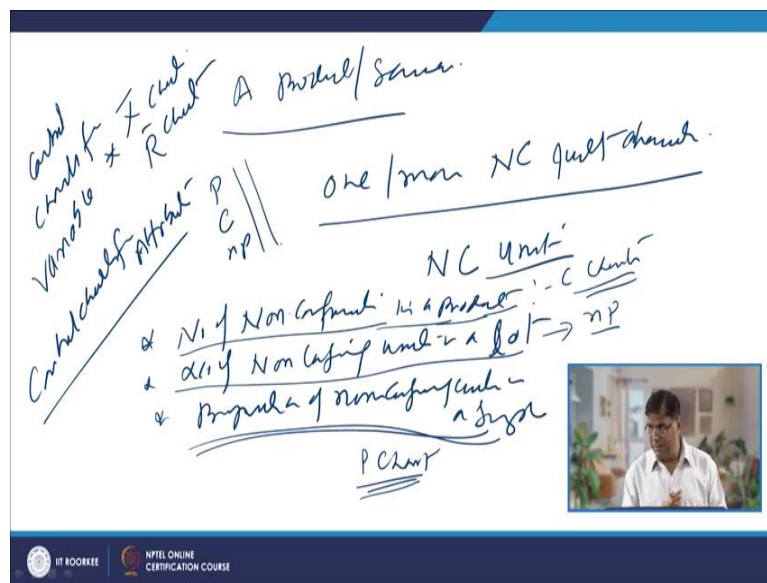 Control
charts for
variable * X̄ Chart
R̄ Chart
Control charts for attribute
P
C
nP
A Product/Service.
One/more NC quality charact.
NC Unit
* No of Non Conformities in a product :- C Chart
* No of Non Confirming units in a lot → nP
* Proportion of nonconfirming units in
a sample
P Chart
IIT ROORKEE
NPTEL ONLINE
CERTIFICATION COURSE